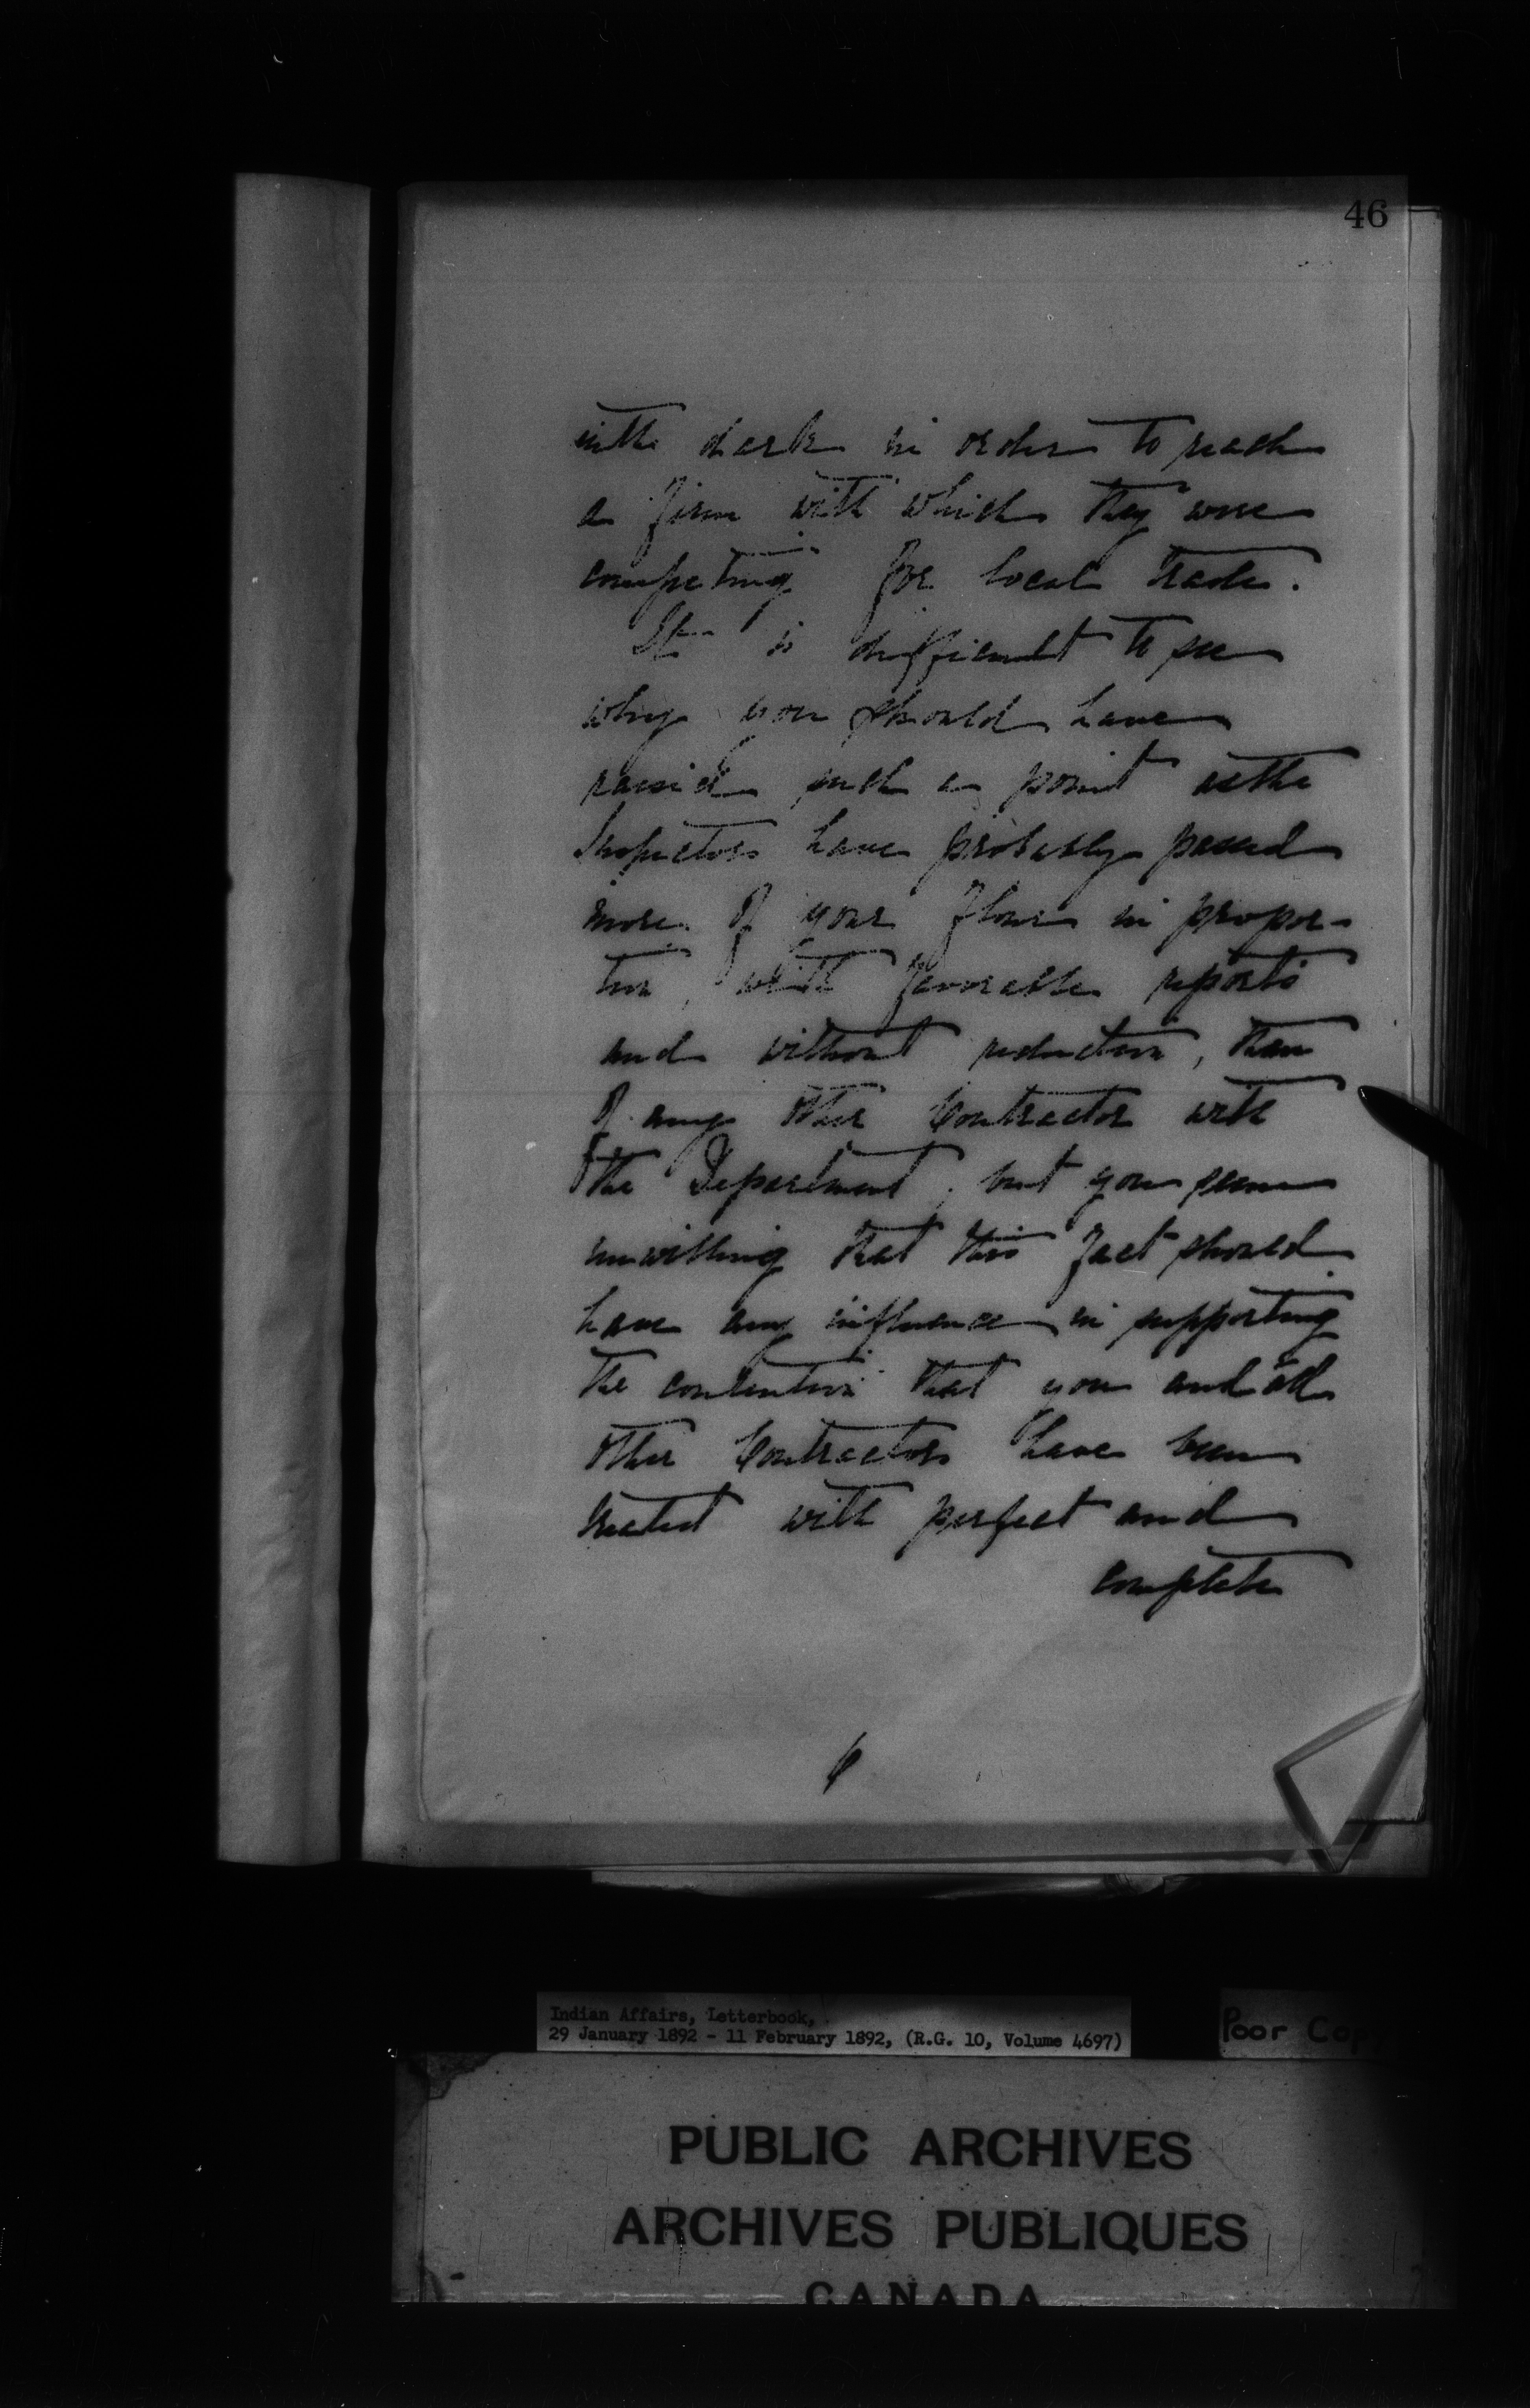 46
in the dark in order to reach
a firm with which they were
competing for local trade.
It is difficult to see
why you should have
raised such a point as the
Inspectors have probably passed
more of your flour in propor-
tion, with favorable reports
and without reduction, than
of any other Contractor with
the Department, but you seem
unwilling that this fact should
have any influence in supporting
the contention that you and all
other Contractors have been
treated with perfect and
complete
Indian Affairs, Letterbook,
29 January 1892 - 11 February 1892, (R.G. 10, Volume 4697)
Poor Cop
PUBLIC ARCHIVES
ARCHIVES PUBLIQUES
CANADA